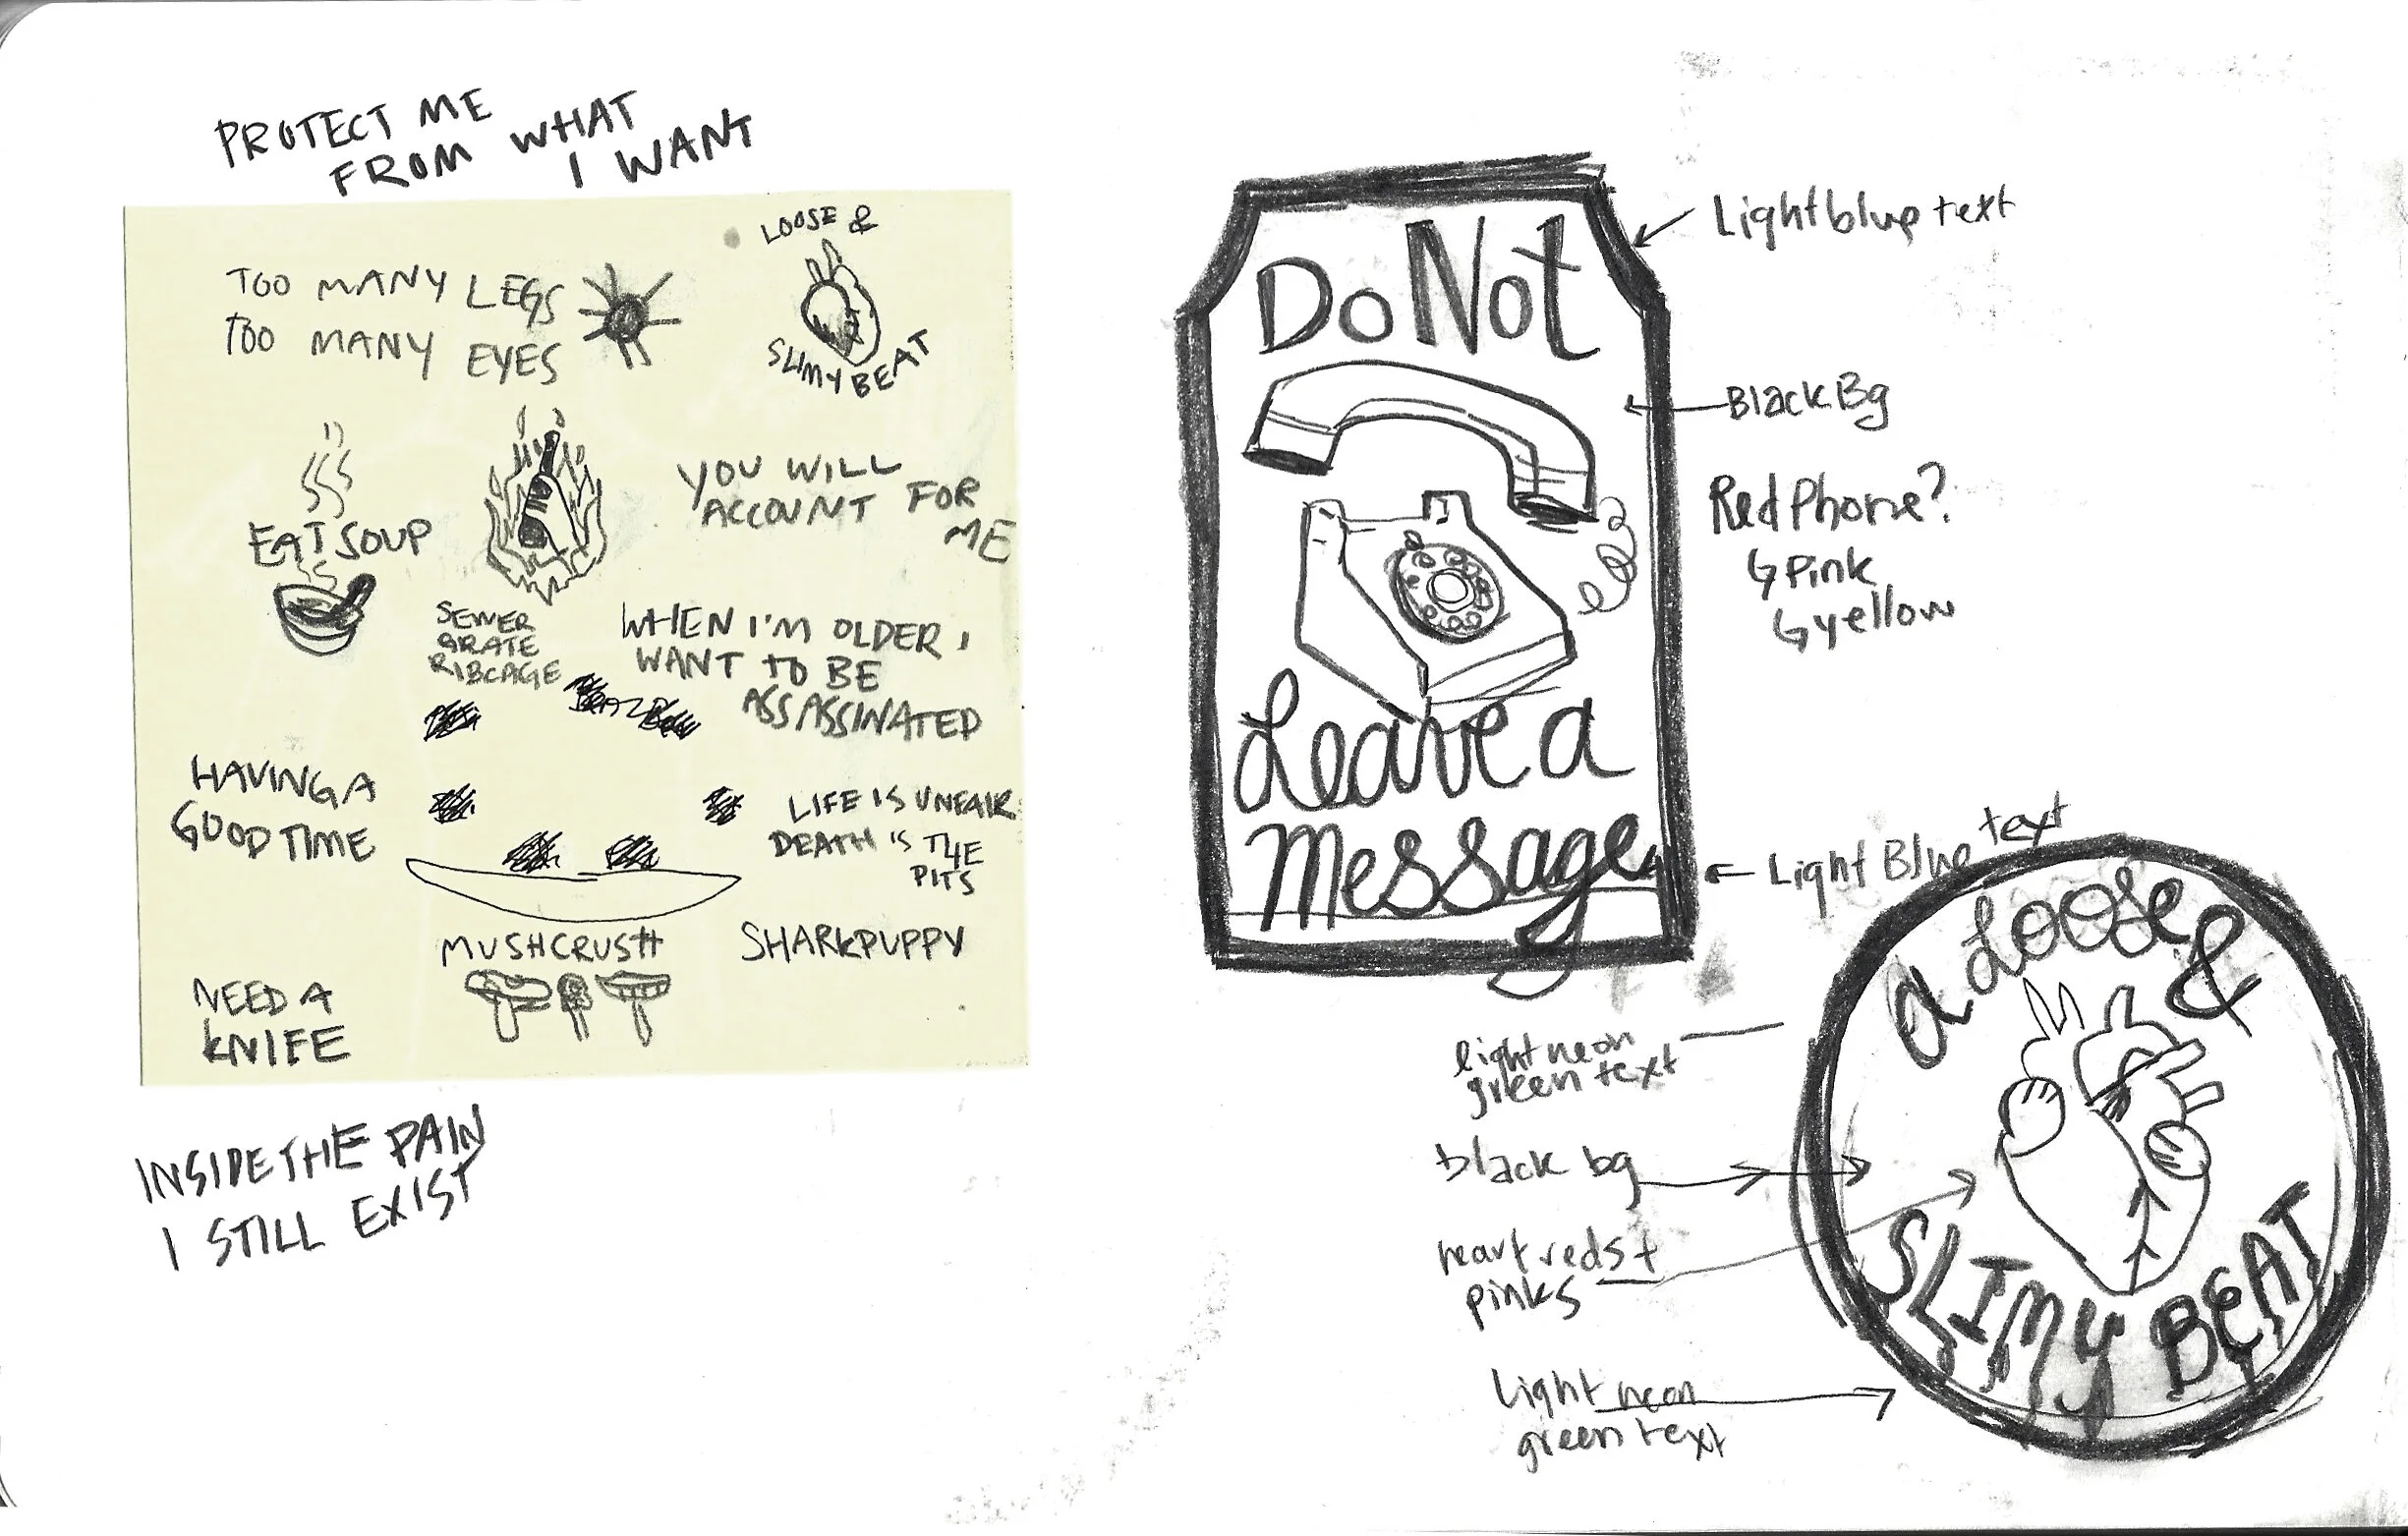 PROTECT ME
FROM WHAT
I WANT
TOO MANY LEGS
TOO MANY EYES
LOOSE &
SLIMY BEAT
EAT SOUP
YOU WILL
ACCOUNT FOR
ME
SEWER
GRATE
RIBCAGE
WHEN I'M OLDER I
WANT TO BE
ASSASSINATED
HAVING A
GOOD TIME
LIFE IS UNFAIR
DEATH IS THE
PITS
MUSHCRUSH
SHARKPUPPY
NEED A
KNIFE
INSIDE THE PAIN
I STILL EXIST
Do Not
Leave a
Message
Light blue text
Black Bg
Red Phone?
Pink
yellow
Light Blue text
a Loose &
SLIMY BEAT
light neon
green text
black bg
heart reds +
pinks
Light neon
green text